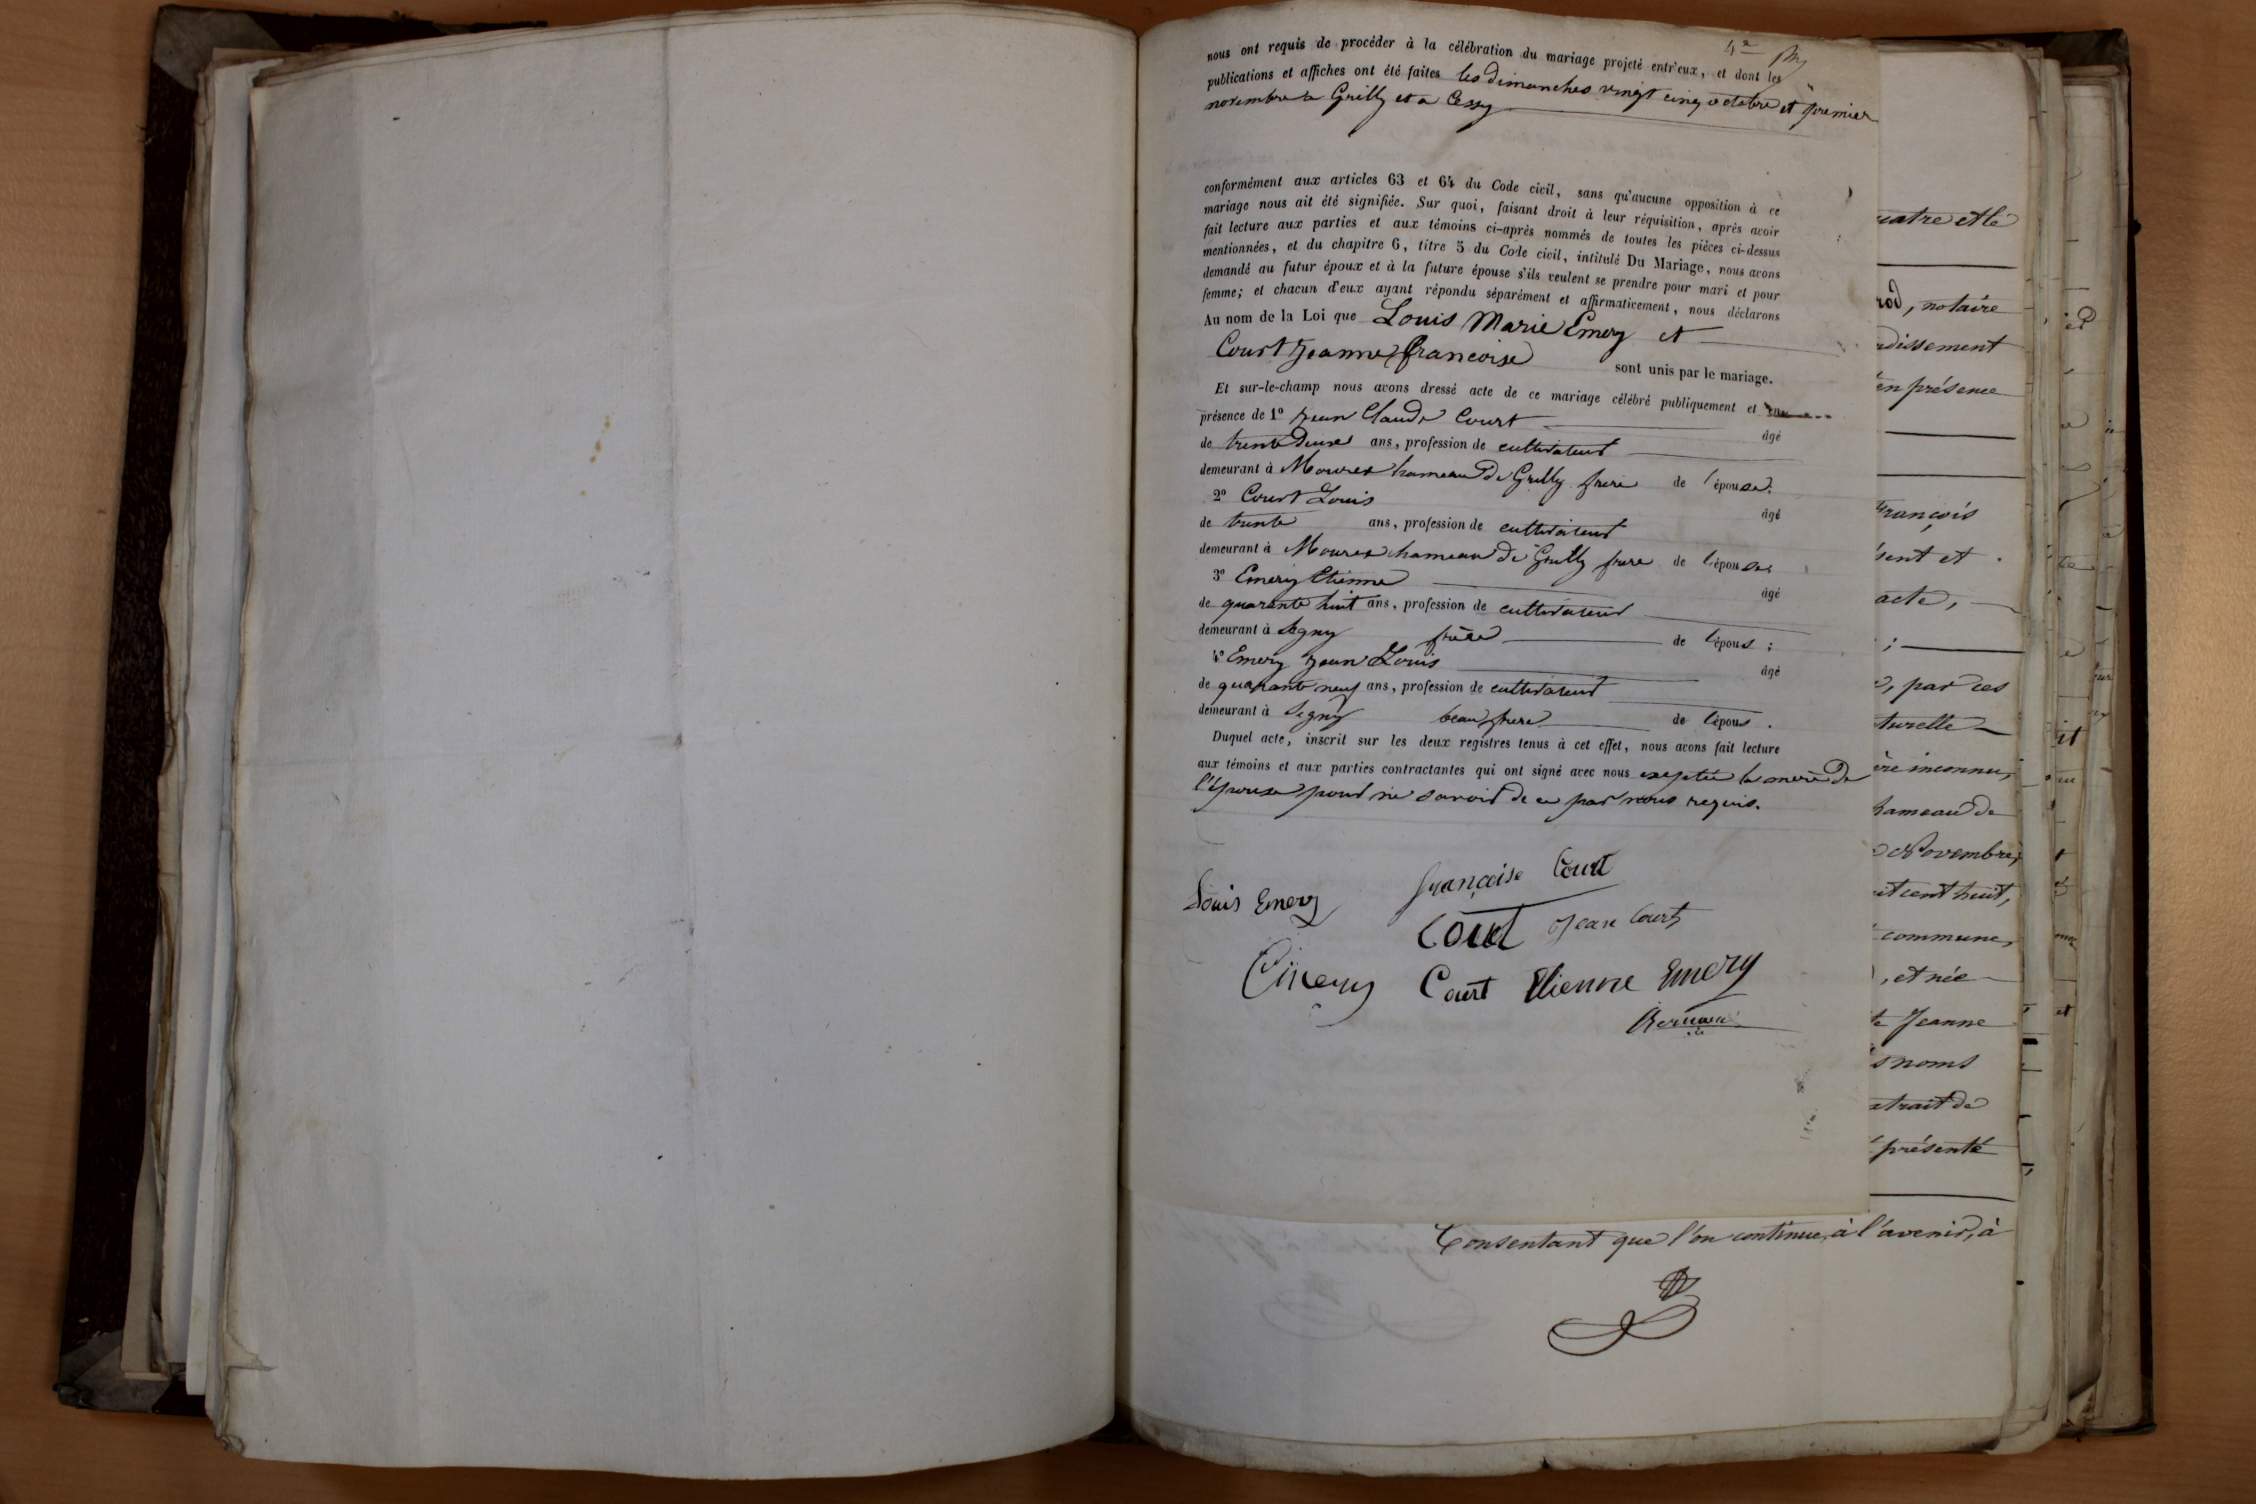 4e
nous ont requis de procéder à la célébration du mariage projeté entr'eux, et dont les
publications et affiches ont été faites les dimanches vingt cinq octobre et premier
novembre a Grilly et a Cessy
conformément aux articles 63 et 64 du Code civil, sans qu'aucune opposition à ce
mariage nous ait été signifiée. Sur quoi, faisant droit à leur réquisition, après avoir
fait lecture aux parties et aux témoins ci-après nommés de toutes les pièces ci-dessus
mentionnées, et du chapitre 6, titre 5 du Code civil, intitulé Du Mariage, nous avons
demandé au futur époux et à la future épouse s'ils veulent se prendre pour mari et pour
femme; et chacun d'eux ayant répondu séparément et affirmativement, nous déclarons
Au nom de la Loi que Louis Marie Emery et
Court Jeanne françoise sont unis par le mariage.
Et sur-le-champ nous avons dressé acte de ce mariage célébré publiquement et en
présence de 1º Jean Claude Court âgé
de trente deux ans, profession de cultivateur
demeurant à Mourex hameau de Grilly frere de l'épouse.
2º Court Louis âgé
de trente ans, profession de cultivateur
demeurant à Mourex hameau de Grilly frere de l'épouse;
3º Emery Etienne âgé
de quarante huit ans, profession de cultivateur
demeurant à Segny frère de l'époux ;
4º Emery Jean Louis âgé
de quarante neuf ans, profession de cultivateur
demeurant à Segny beau frere de l'époux .
Duquel acte, inscrit sur les deux registres tenus à cet effet, nous avons fait lecture
aux témoins et aux parties contractantes qui ont signé avec nous exeptée la mere de
l'épouse pour ne savoir de ce par nous requis.
Louis Emery françoise Court
Court Jean Court
Emery Court Etienne Emery
uatre et le
rod, notaire
ndissement
en présence
François
sent et
acte,
;
, par ces
turelle
ère inconnu,
hameau de
Novembre,
it cent huit,
commune,
, et née
te Jeanne
s noms
xtrait de
présenté
Consentant que l'on continue, à l'avenir, à